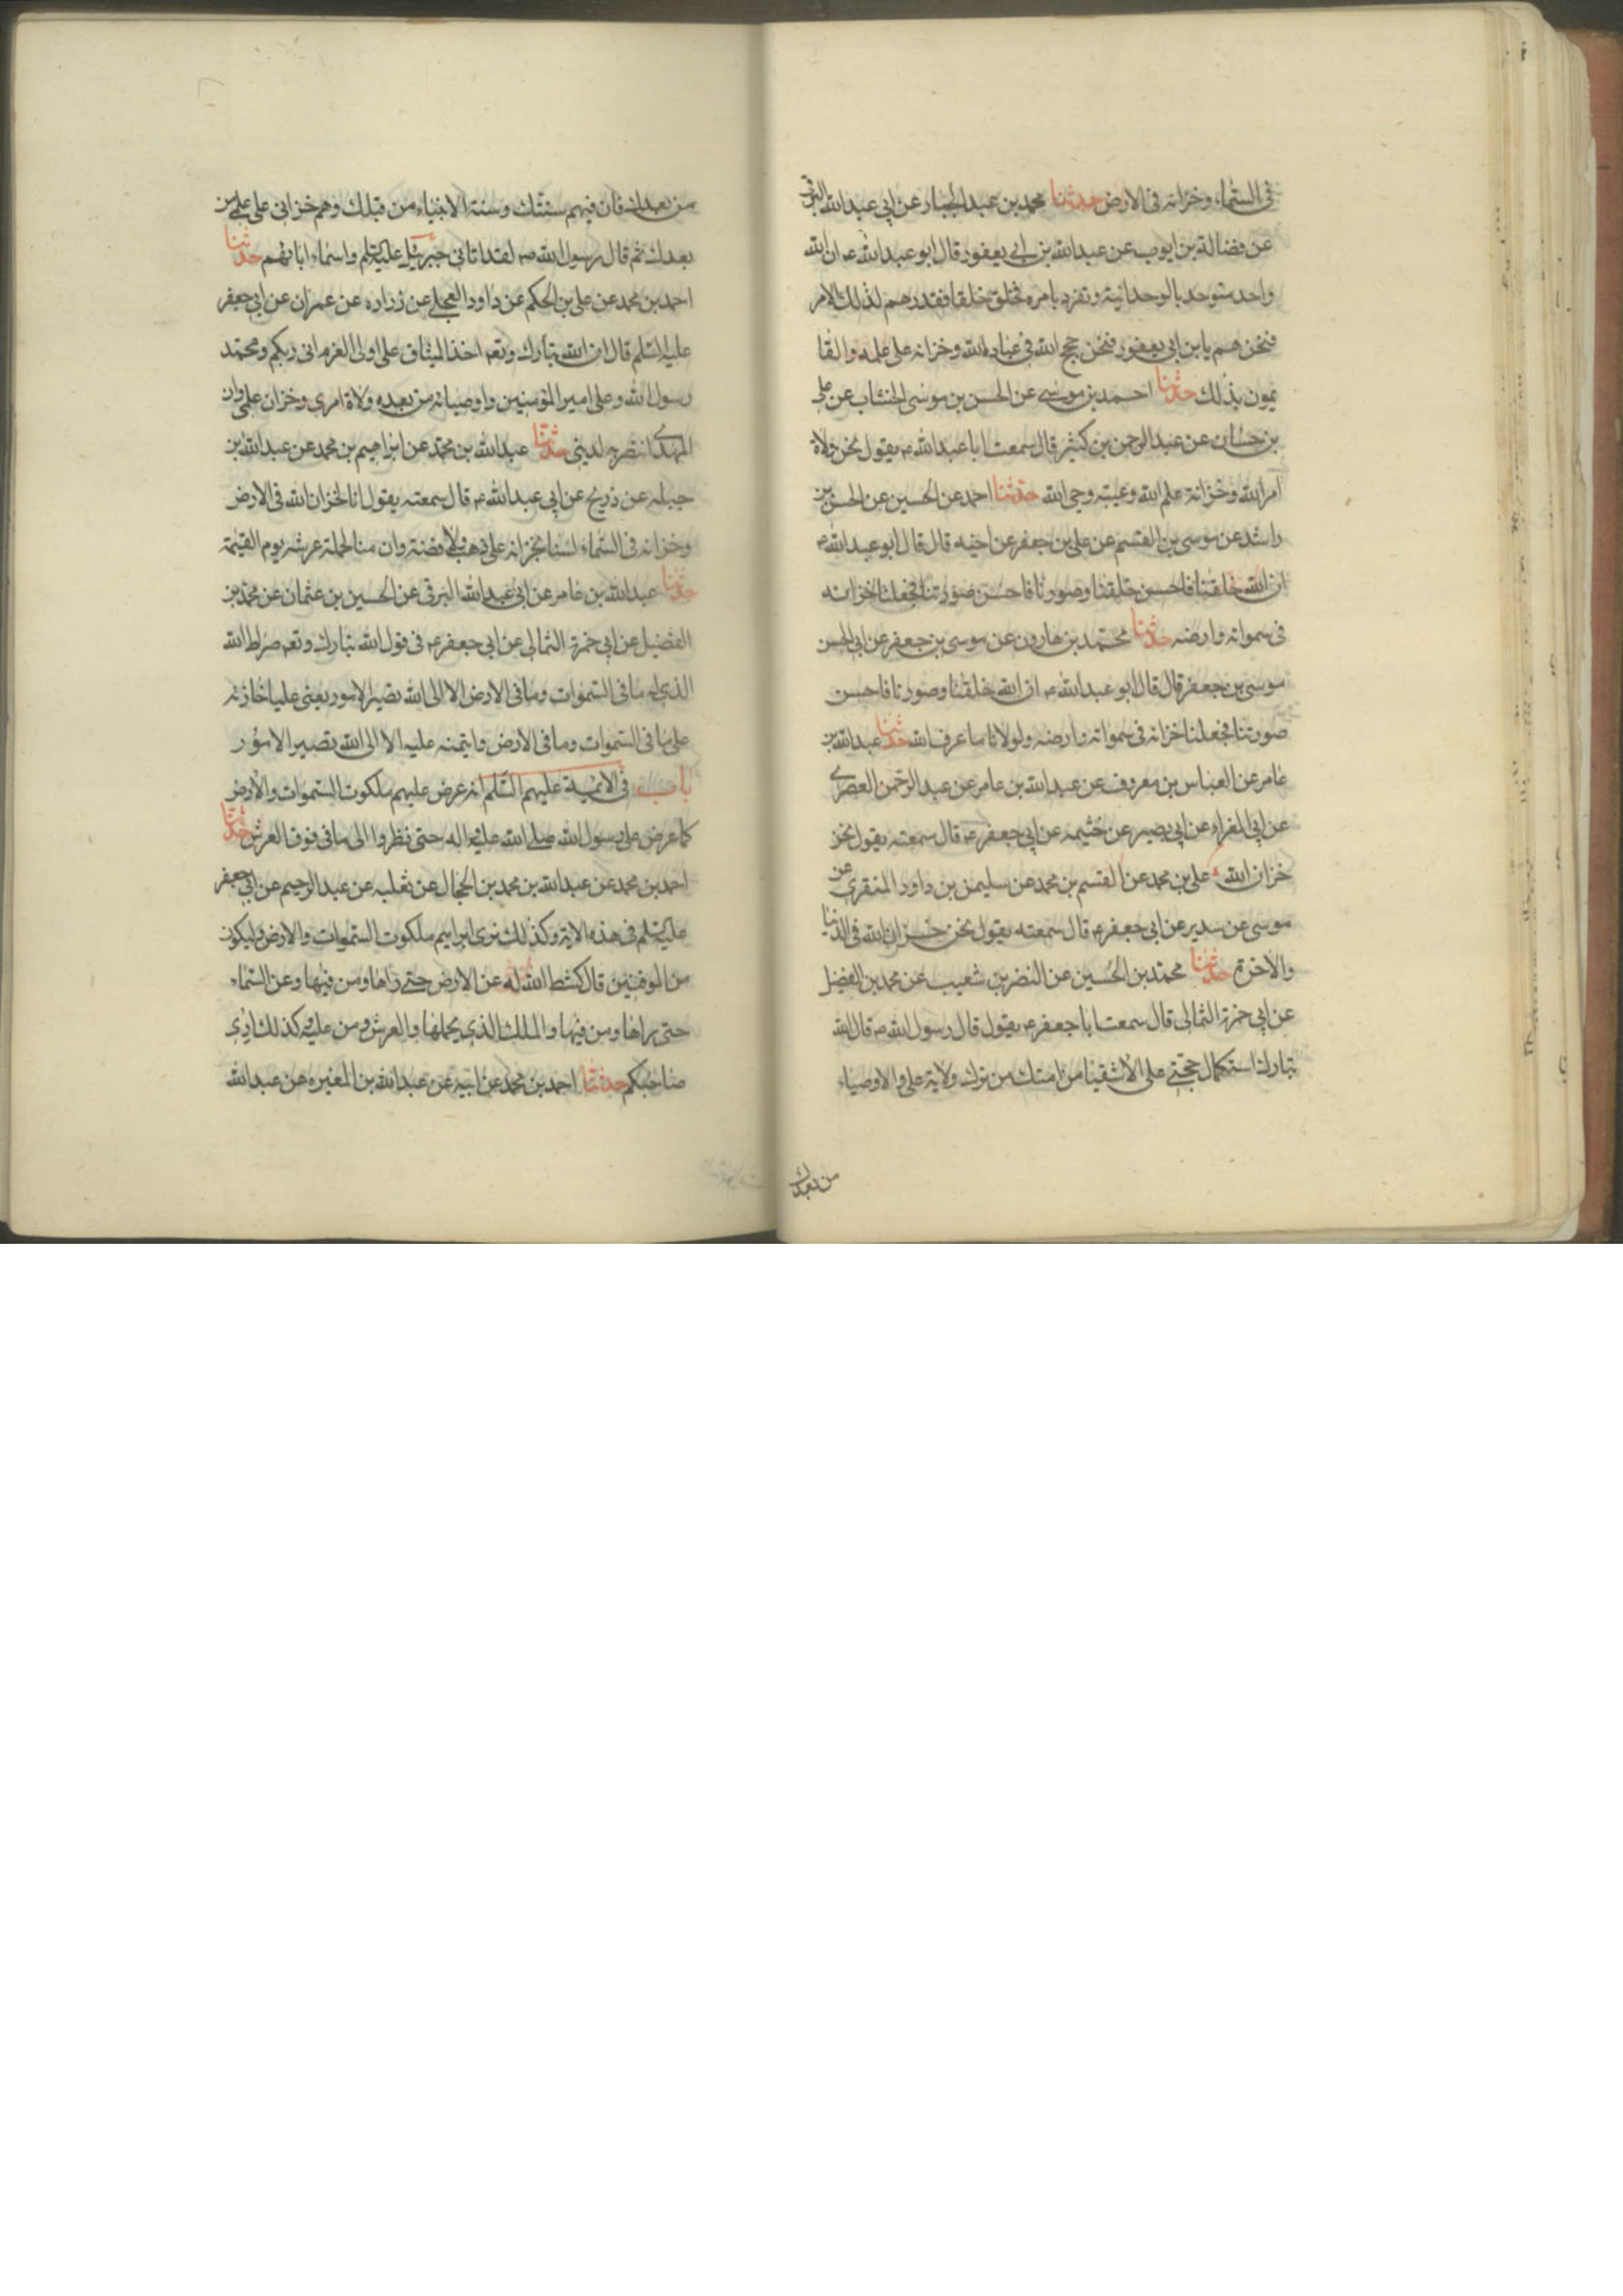 فى السماء وخزانه فى الارض حدثنا محمد بن عبد الجبار عن ابى عبد الله البرقى
عن فضالة بن ايوب عن عبد الله بن ابى يعفور قال ابو عبد الله ع ان الله
واحد متوحد بالوحدانية وتفرد بامره فخلق خلقا فقدرهم لذلك الامر
فنحن هم يابن ابى يعفور فنحن حجج الله فى عباده الله وخزانه على علمه والقا
يمون بذلك حدثنا احمد بن موسى عن الحسن بن موسى الخشاب عن على
بن حسان عن عبد الرحمن بن كثير قال سمعت ابا عبد الله ع يقول نحن ولاة
امر الله وخزانة علم الله وعيبته وحى الله حدثنا احمد عن الحسين عن الحسن بن
راشد عن موسى بن القسم عن على بن جعفر عن اخيه قال قال ابو عبد الله ع
ان الله خلقنا فاحسن خلقنا وصورنا فاحسن صورتنا فجعلنا خزانه
فى سمواته وارضه حدثنا محمد بن هارون عن موسى بن جعفر عن ابى الحسن
موسى بن جعفر قال قال ابو عبد الله ع ان الله خلقنا وصورنا فاحسن
صورتنا فجعلنا خزانه فى سمواته وارضه ولولانا ما عرف الله حدثنا عبد الله بن
عامر عن العباس بن معروف عن عبد الله بن عامر عن عبد الرحمن العصرى
عن ابى المغراء عن ابى بصير عن خثيمه عن ابى جعفر ع قال سمعته يقول نحن
خزان الله على بن محمد عن القسم بن محمد عن سليمن بن داود المنقرى عن
موسى عن سدير عن ابى جعفر ع قال سمعته يقول نحن خزان الله فى الدنيا
والاخرة حدثنا محمد بن الحسين عن النضر بن شعيب عن محمد بن الفضيل
عن ابى حمزة الثمالى قال سمعت ابا جعفر ع يقول قال رسول الله ص قال الله
تبارك استكمال حجتى على الاشقيا من امتك من ترك ولاية على والاوصياء
من بعدك
من بعدك فان فيهم سنتك وسنة الانبياء من قبلك وهم خزانى على علمى من
بعدك ثم قال رسول الله ص لقد اتانى جبرئيل عليه السلم واسماء ابائهم حدثنا
احمد بن محمد عن على بن الحكم عن داود العجلى عن زراره عن عمران عن ابى جعفر
عليه السلم قال ان الله تبارك وتعم اخذ الميثاق على اولى العزم انى ربكم ومحمد
رسول الله وعلى امير المؤمنين واوصيائه من بعده ولاة امرى وخزان علمى وان
المهدى انتصر به لدينى حدثنا عبد الله بن محمد عن ابراهيم بن محمد عن عبد الله بن
جبله عن ذريح عن ابى عبد الله ع قال سمعته يقول انا لخزان الله فى الارض
وخزانه فى السماء لسنا بخزانه على ذهب ولا فضة وان منا لحملة عرشه يوم القيمة
حدثنا عبد الله بن عامر عن ابى عبد الله البرقى عن الحسين بن عثمان عن محمد بن
الفضيل عن ابى حمزة الثمالى عن ابى جعفر ع فى قول الله تبارك وتعم صراط الله
الذى له ما فى السموات وما فى الارض الا الى الله تصير الامور يعنى عليا خازنه
على ما فى السموات وما فى الارض وايتمنه عليه الا الى الله تصير الامور
باب فى الائمة عليهم السلم انه عرض عليهم ملكوت السموات والارض
كما عرض على رسول الله صلى الله عليه واله حتى نظروا الى ما فى فوق العرش حدثنا
احمد بن محمد عن عبد الله بن محمد بن الحجال عن ثعلبه عن عبد الرحيم عن ابى جعفر
عليه السلم فى هذه الاية وكذلك نرى ابراهيم ملكوت السموات والارض وليكون
من الموقنين قال كشط الله له عن الارض حتى راها ومن فيها وعن السماء
حتى راها ومن فيها والملك الذى يحملها والعرش ومن عليه وكذلك ارى
صاحبكم حدثنا احمد بن محمد عن ابيه عن عبد الله بن المغيره عن عبد الله